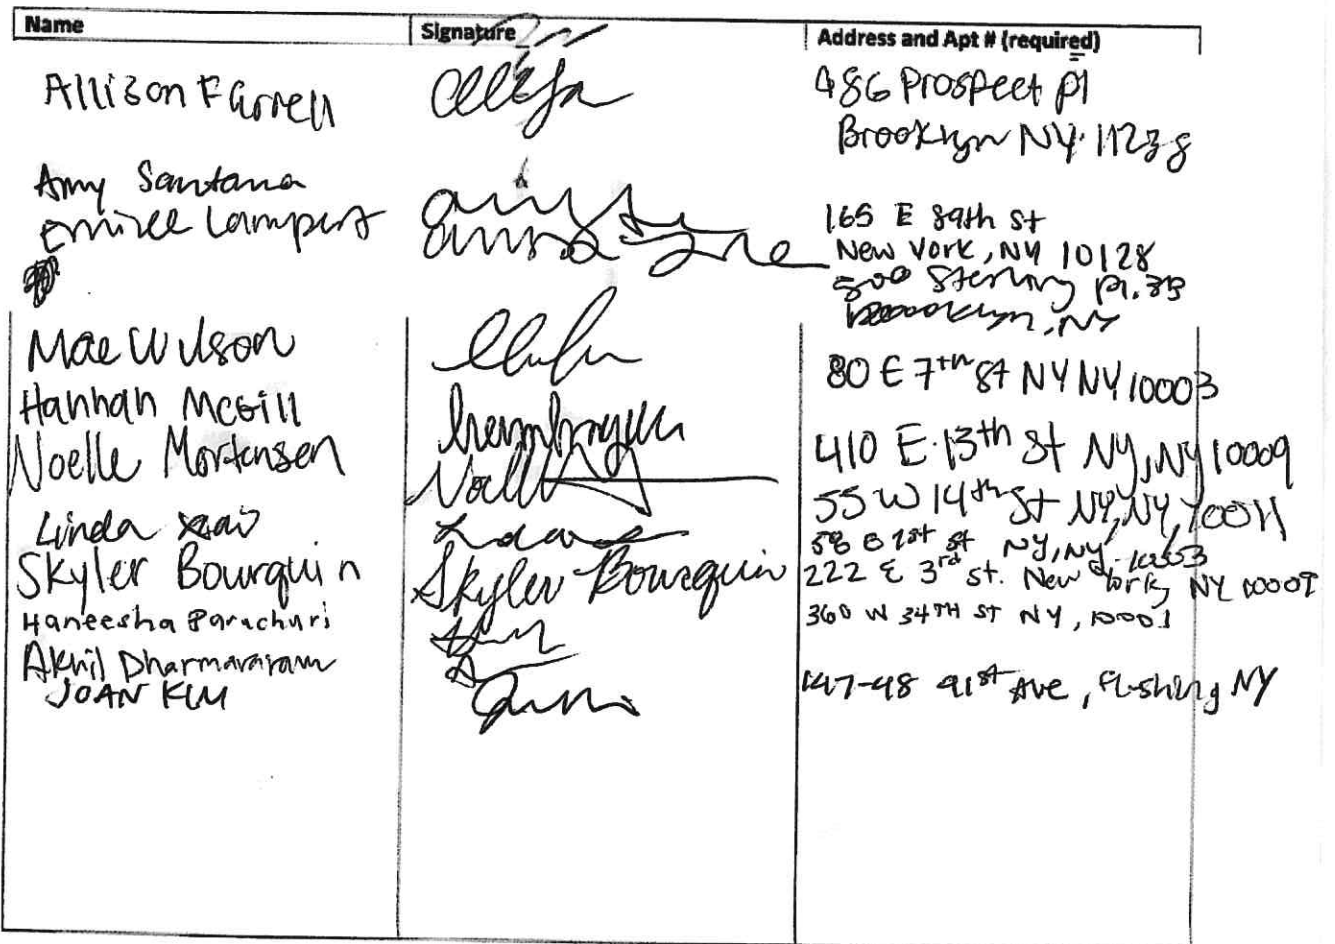 Name Signature Address and Apt # (required)
Allison Farrell 486 Prospect Pl
Brooklyn NY 11238
Amy Santana 165 E 89th St
New York, NY 10128
Lampert 500 Sterling Pl. 3B
Brooklyn, NY
Mae Wilson 80 E 7th St NY NY 10003
Hannah McGill 410 E. 13th St NY, NY 10009
Noelle Mortensen Noelle 55 W 14th St NY, NY, 10011
Linda Xiao 58 E 1st St NY, NY,
Skyler Bourquin Skyler Bourquin 222 E 3rd St. New York, NY 10009
Haneesha Paruchuri 360 W 34TH ST NY, 10001
Akhil
JOAN KIM 147-48 91st Ave, Flushing NY